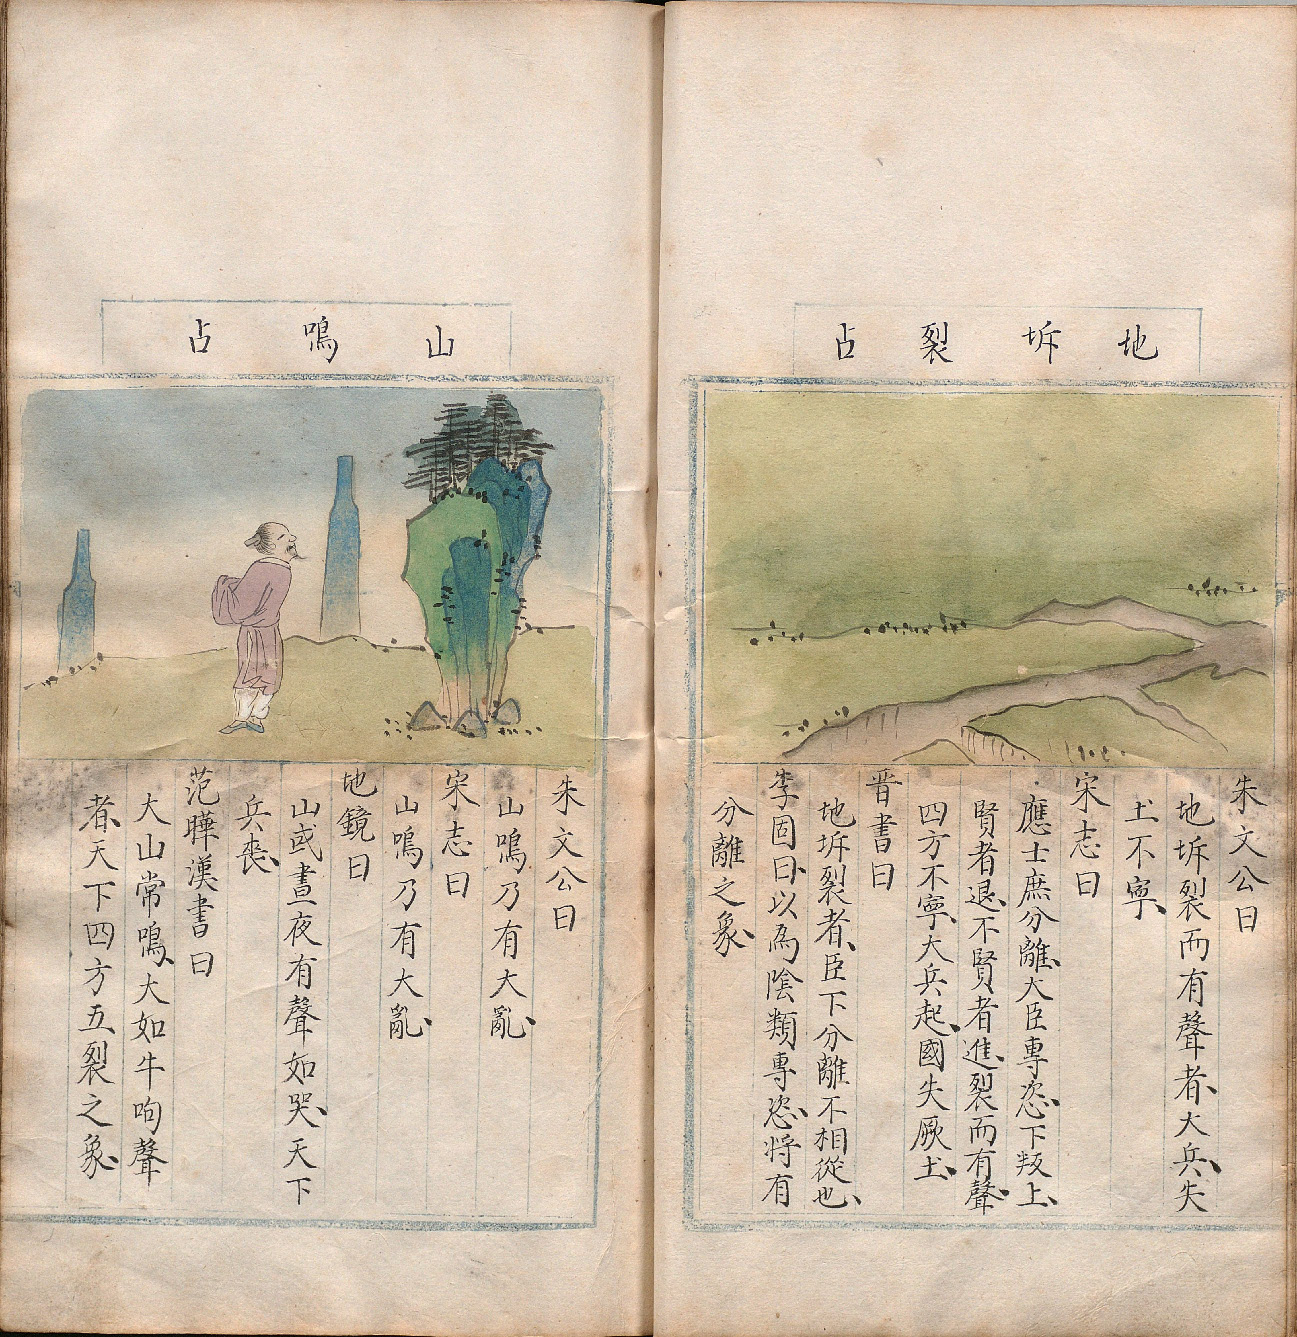 地坼裂占
朱文公曰
地坼裂而有聲者、大兵、失
土不寧、
宋志曰
應士庶分離、大臣專恣、下叛上、
賢者退、不賢者進、裂而有聲、
四方不寧、大兵起、國失厥土、
晋書曰
地坼裂者、臣下分離不相從也、
李固曰、以為陰類專恣、將有
分離之象、
山鳴占
朱文公曰
山鳴乃有大亂、
宋志曰
山鳴乃有大亂、
地鏡曰
山或晝夜有聲如哭、天下
兵喪、
范曄漢書曰
大山常鳴、大如牛呴聲
者、天下四方五裂之象、